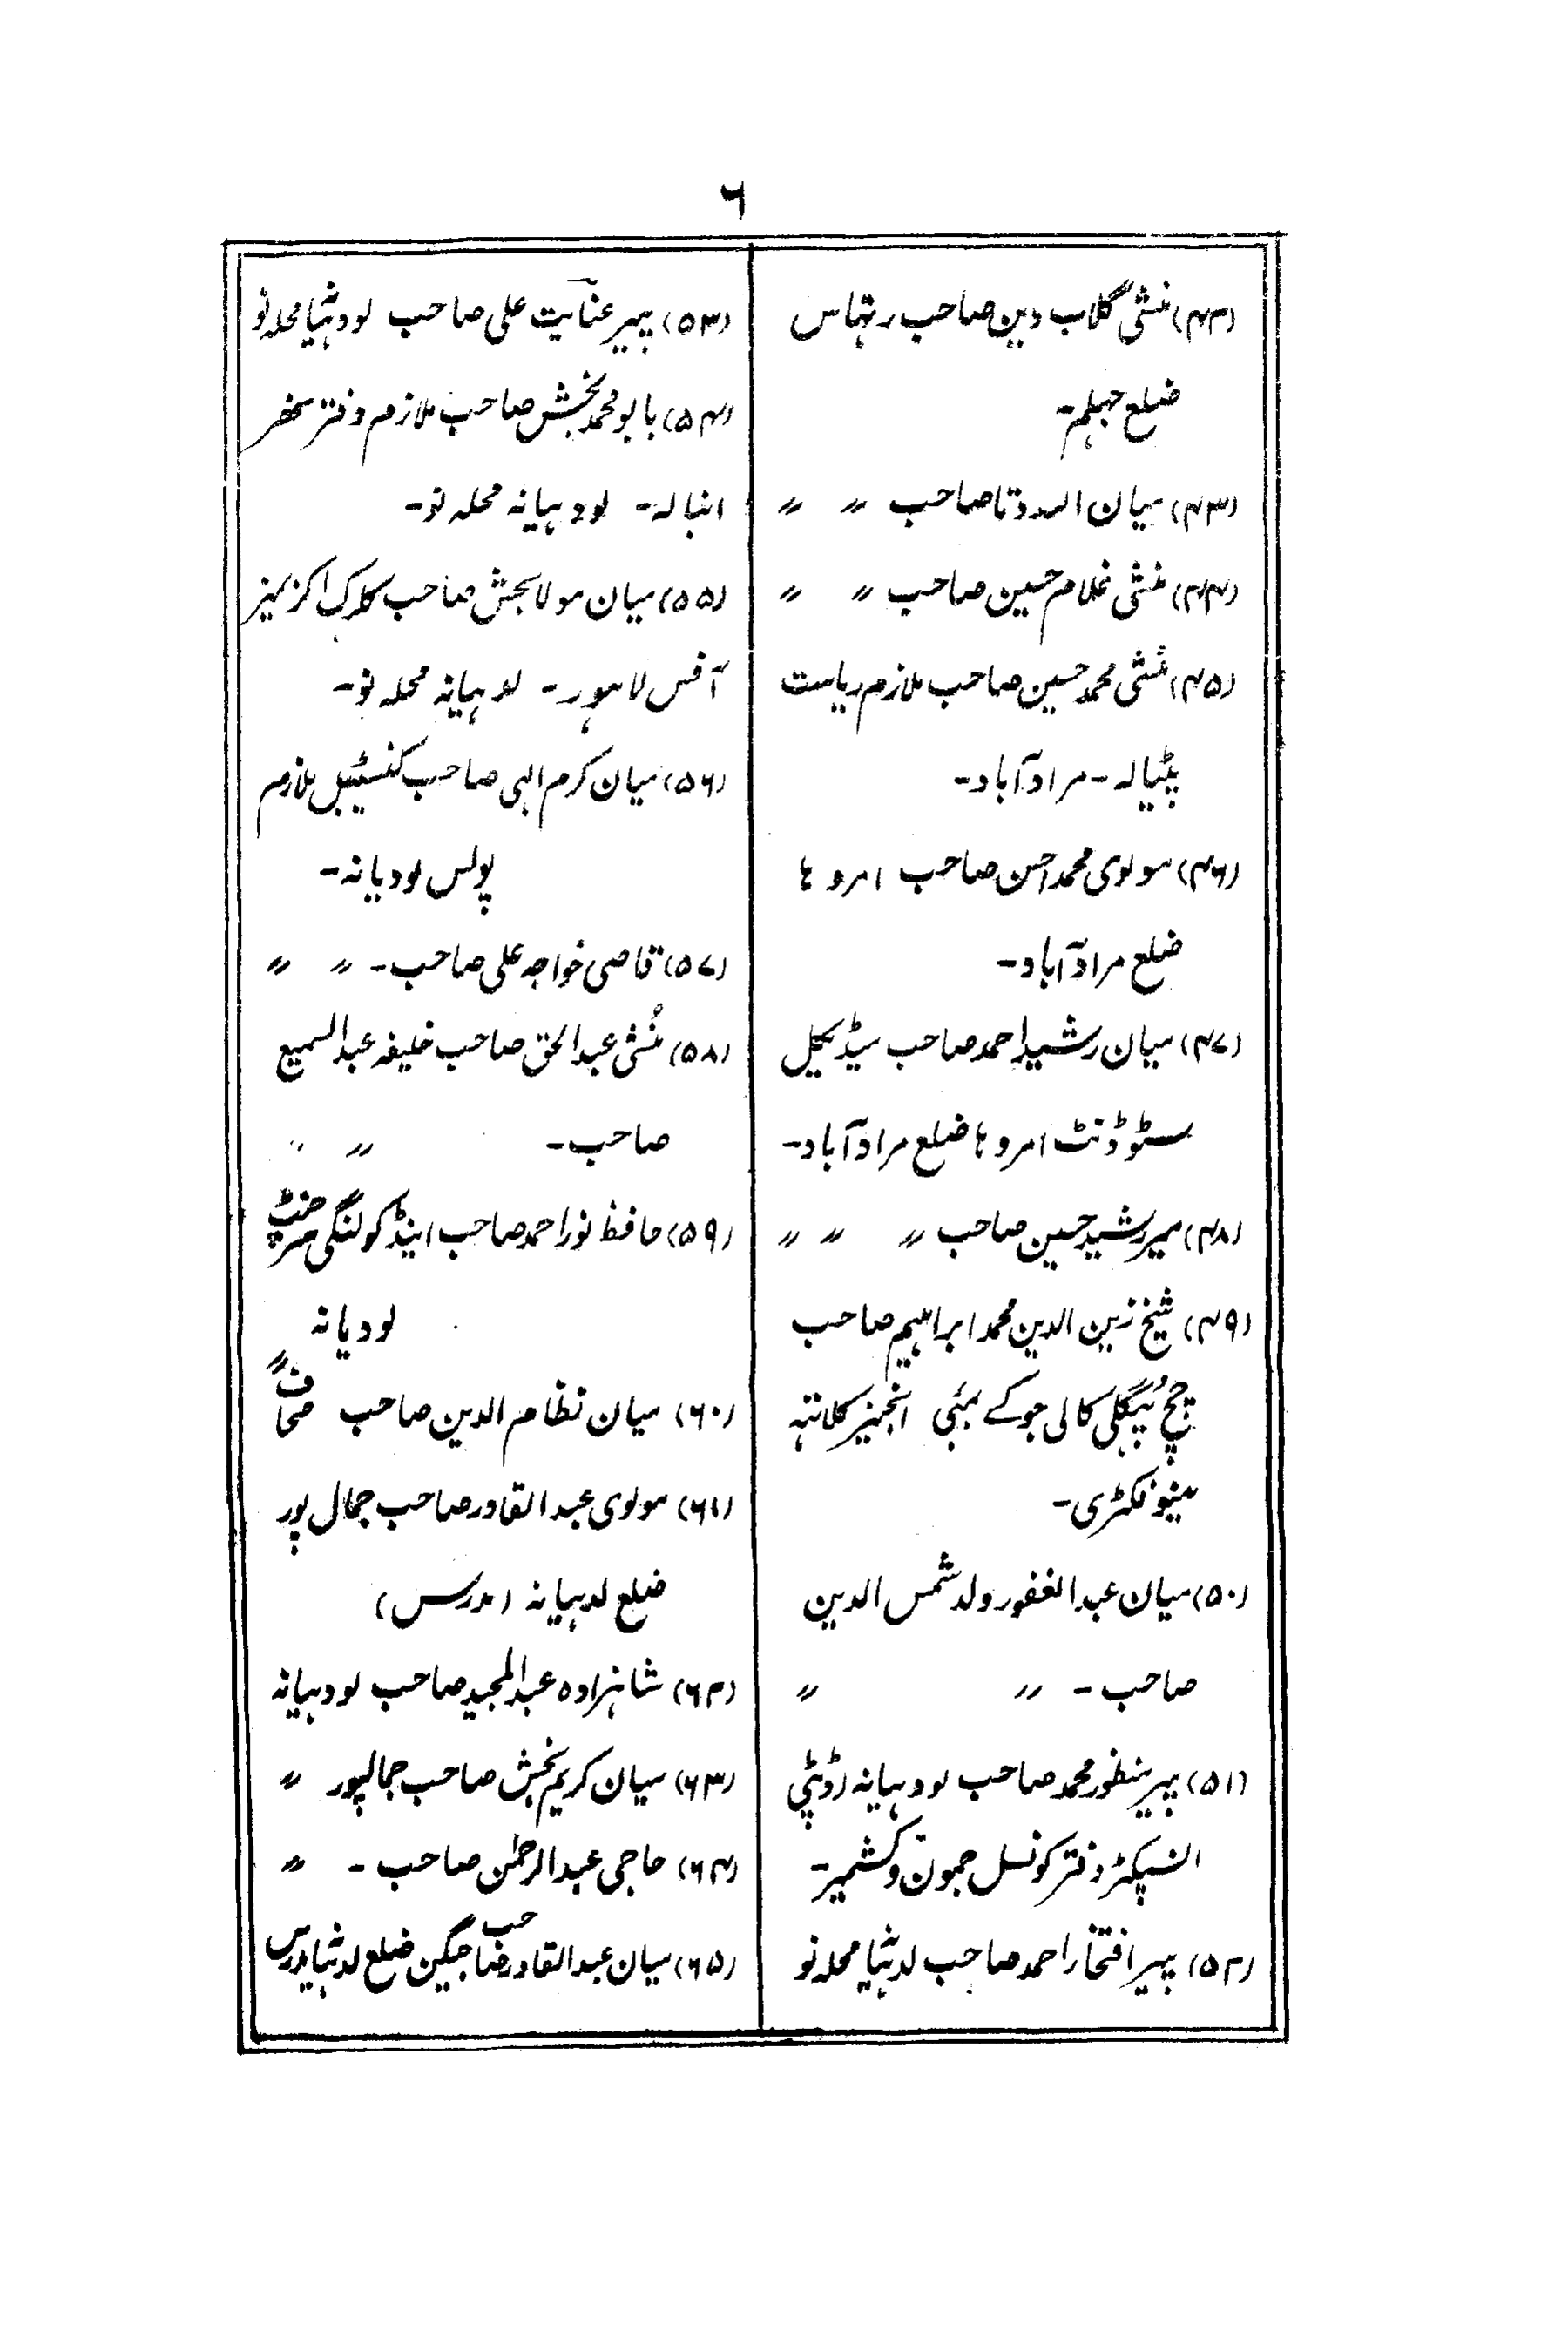 ۶
(۴۲) منشی گلاب دین صاحب رہتاس
ضلع جہلم۔
(۴۳) میان اللہ دتا صاحب 〃 〃
(۴۴) منشی غلام حسین صاحب 〃 〃
(۴۵) منشی محمد حسین صاحب ملازم ریاست
پٹیالہ ۔ مرادآباد۔
(۴۶) مولوی محمد احسن صاحب امروہا
ضلع مرادآباد۔
(۴۷) میان رشید احمد صاحب میڈیکل
سٹوڈنٹ امروہا ضلع مرادآباد۔
(۴۸) میر رشید حسین صاحب 〃 〃 〃
(۴۹) شیخ زین الدین محمد ابراہیم صاحب
چچ پُگلی کالی جو کے بمبئی انجنیر کلاتہہ
مینوفکٹری۔
(۵۰) میان عبد الغفور ولد شمس الدین
صاحب ۔ 〃 〃
(۵۱) پیر منظور محمد صاحب لودہیانہ (ڈپٹی
انسپکٹر دفتر کونسل جمون وکشمیر۔
(۵۲) پیر افتخار احمد صاحب لدہیانہ محلہ نو
(۵۳) پیر عنایت علی صاحب لودہیانہ محلہ نو
(۵۴) بابو محمد بخش صاحب ملازم دفتر نہر
انبالہ ۔ لودہیانہ محلہ نو۔
(۵۵) میان مولا بخش صاحب کلرک اکزیمنر
آفس لاہور ۔ لدہیانہ محلہ نو۔
(۵۶) میان کرم الہی صاحب کنسٹیبل ملازم
پولس لودیانہ۔
(۵۷) قاضی خواجہ علی صاحب۔ 〃 〃
(۵۸) منشی عبد الحق صاحب خلیفہ عبد السمیع
صاحب۔ 〃 〃
(۵۹) حافظ نور احمد صاحب اینڈ کو لنگی مرچنٹ
لودیانہ
(۶۰) میان نظام الدین صاحب صحاف 〃
(۶۱) مولوی عبد القادر صاحب جمال پور
ضلع لدہیانہ (مدرس)
(۶۲) شاہزادہ عبد المجید صاحب لودہیانہ
(۶۳) میان کریم بخش صاحب جمالپور 〃
(۶۴) حاجی عبد الرحمٰن صاحب ۔ 〃
(۶۵) میان عبد القادر صاحب جیگن ضلع لدہیانہ مدرس